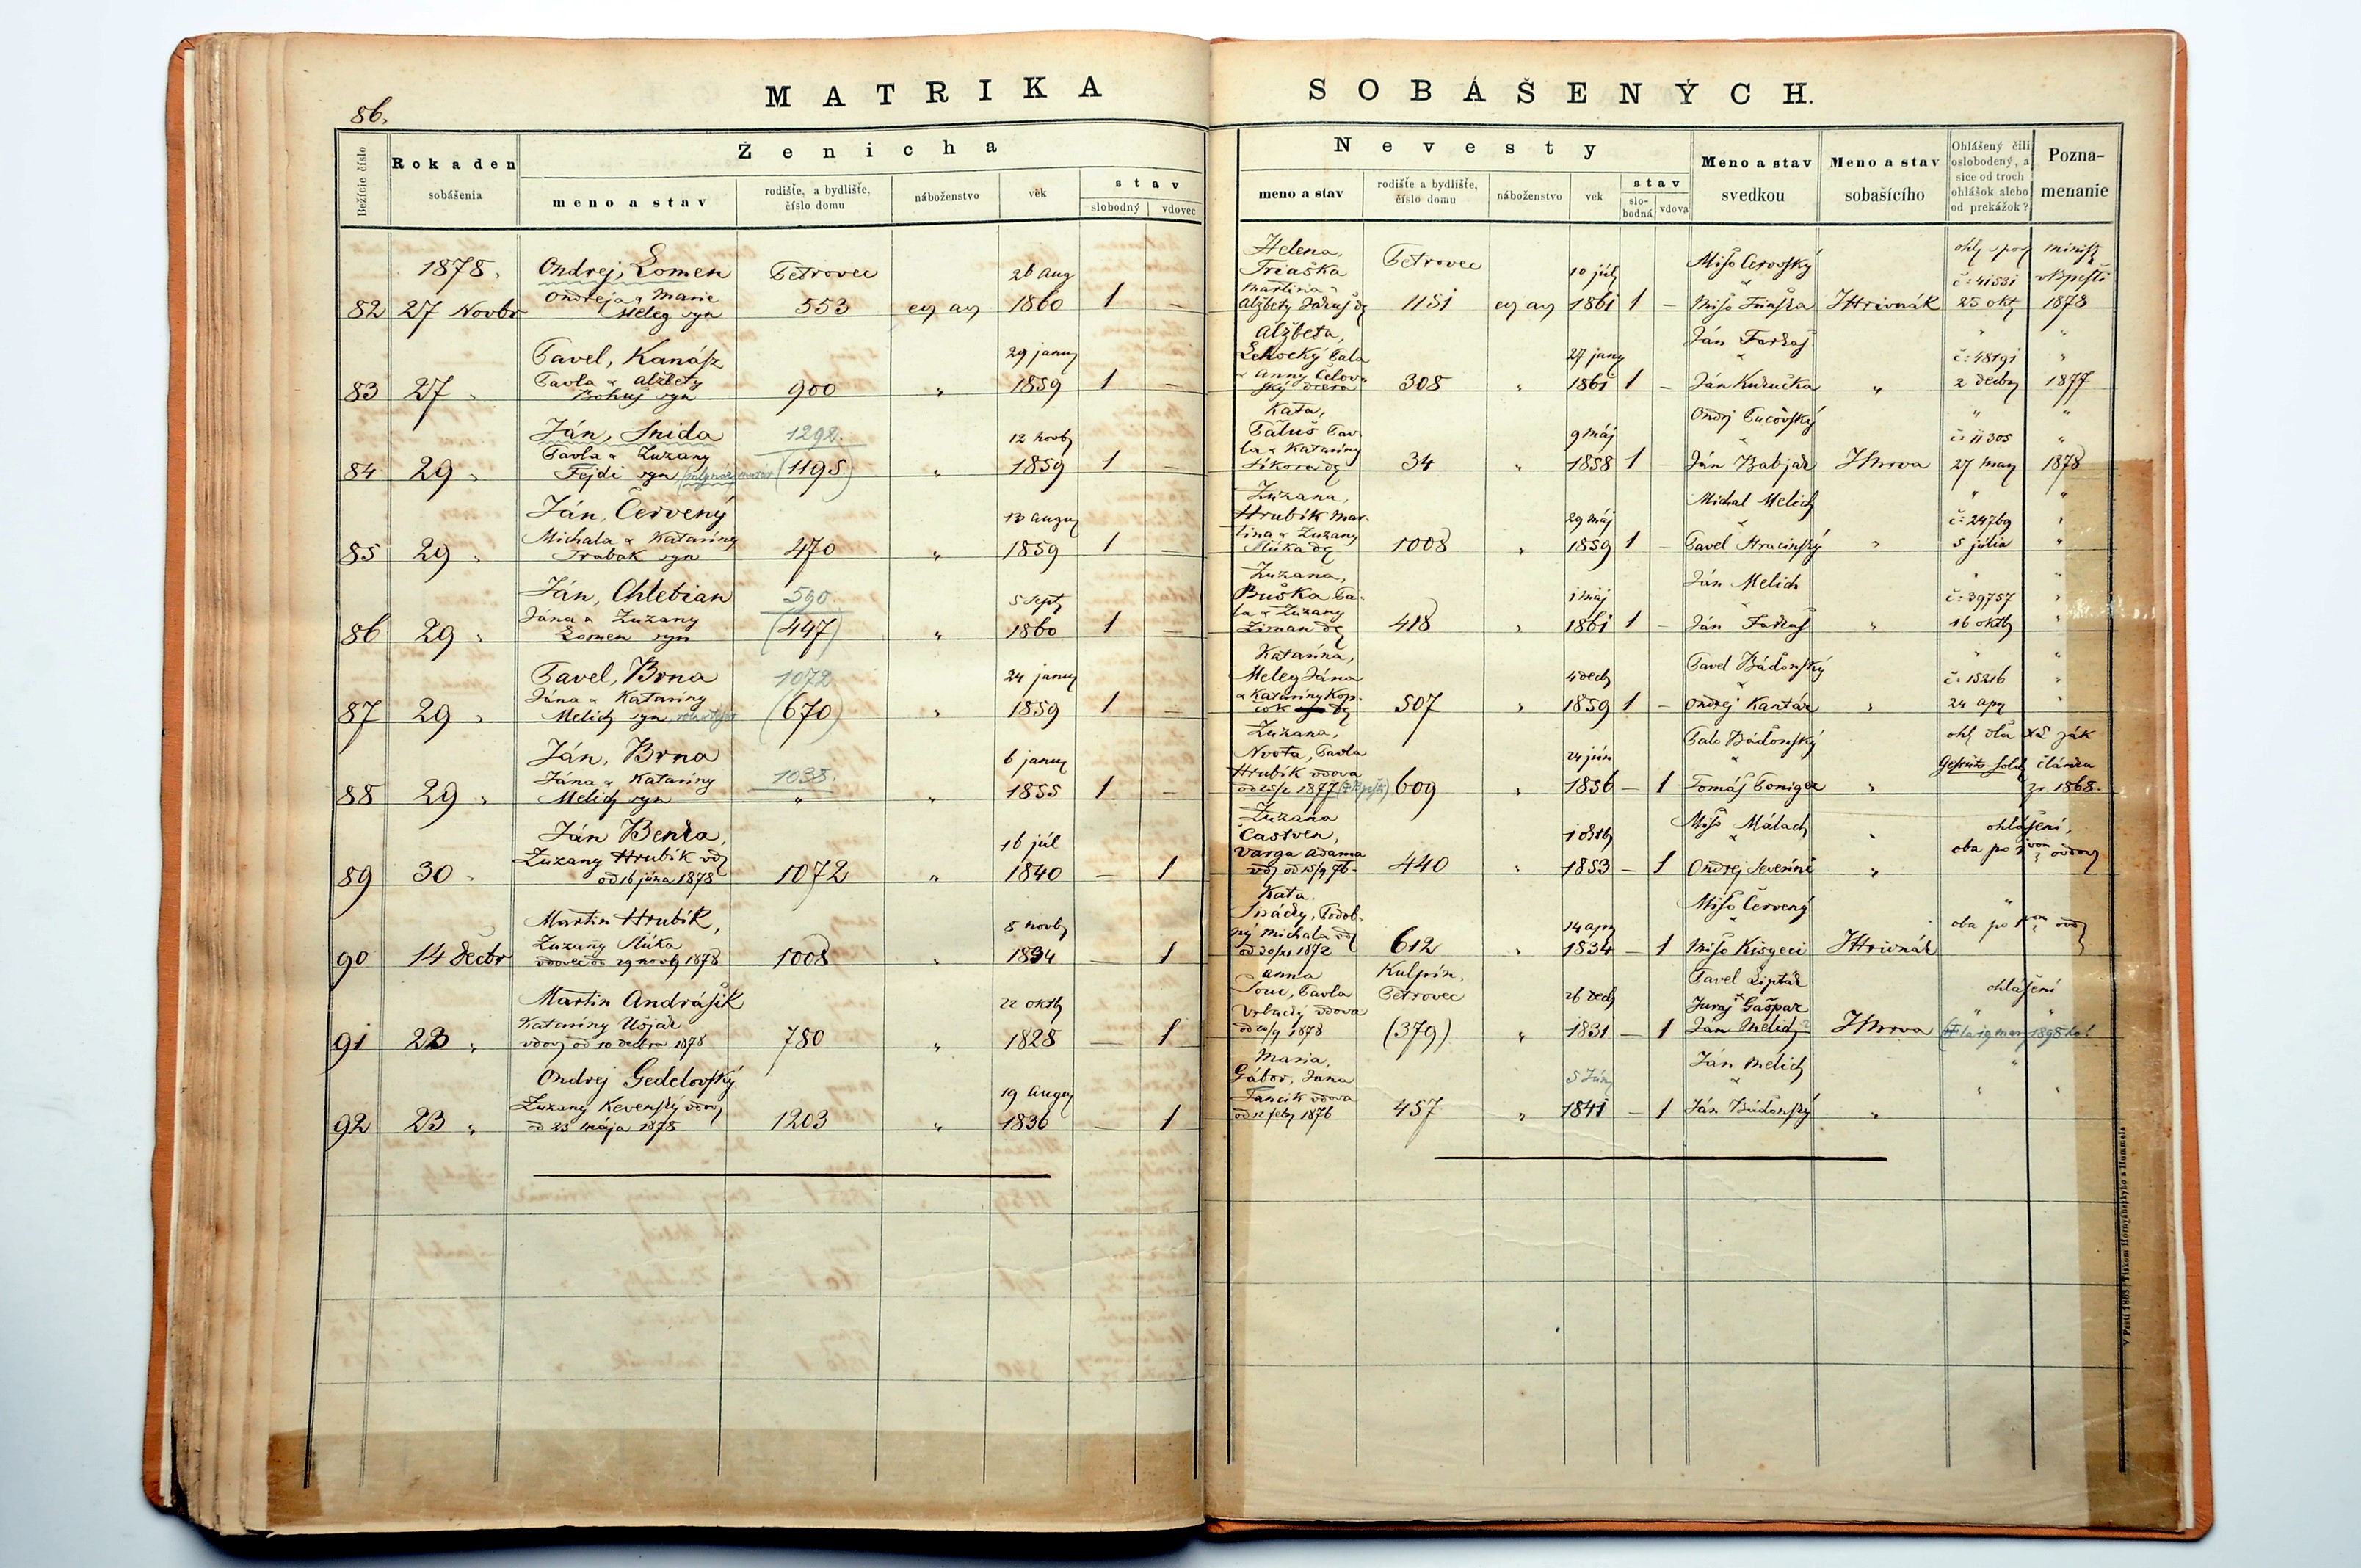 86.
MATRIKA SOBÁŠENÝCH.
Bežície číslo
Rok a den
sobášenia
Ženicha
meno a stav
rodišťe, a bydlišťe,
číslo domu
náboženstvo
věk
stav
slobodný
vdovec
Nevesty
meno a stav
rodišťe a bydlišťe,
číslo domu
náboženstvo
vek
stav
slo-
bodná
vdova
Meno a stav
svedkou
Meno a stav
sobašícího
Ohlášený čili
oslobodený, a
sice od troch
ohlášok alebo
od prekážok?
Pozna-
menanie
1878.
82 27 Novbr
Ondrej, Lomen
Ondreja a Marie
Meleg syn
Petrovec
553
ev av
26 aug
1860
1 —
Helena,
Triaška
Martina a
Alžbety Jakuš dc
Petrovec
1151
ev av
10 júl
1861
1 —
Mišo Cerovský
a
JHrivnák
č: 41531
25 okt
1878
83 27 "
Pavel, Kanász
Pavla a Alžbety
Bohuš syn
900
"
29 janu
1859
1 —
Alžbeta,
Lehocký Pala
a Anny Celov
ský dcera
308
"
27 janu
1861
1 —
Ján Farkaš
a
Ján Kukučka
"
č: 48191
2 decb
1877
84 29 "
Ján, Snida
Pavla a Zuzany
Fejdi syn
1292.
(1195)
"
12 novb
1859
1
Kata,
Paluš Pav
la a Katariny
Sikora dc
34
"
9 máj
1858
1 —
Ján Babjak
JMrva
č: 11305
27 mar
1878
85 29 "
Ján, Červený
Michala a Katariny
Trabak syn
470
"
13 augu
1859
1 —
Zuzana,
Hrubík Mar-
tina a Zuzany
Slúka dc
1008
"
29 máj
1859
1 —
Michal Melich
a
Pavel Hracinský
"
č: 24769
5 júlia
"
86 29 "
Ján, Chlebian
Jána a Zuzany
Lomen syn
590.
(447)
"
5 sept
1860
1 —
Zuzana,
Buška Pa-
la a Zuzany
Ziman dc
418
"
1 máj
1861
1 —
Ján Melich
a
Ján Farkaš
"
č: 39757
16 oktb
"
87 29 "
Pavel, Brna
Jána a Katariny
Melich syn
1072
(670)
"
24 janu
1859
1 —
Katarína,
Meleg Jána
a Katariny Kop-
čok dc
507
"
4 decb
1859
1 —
Pavel Báďonský
a
Ondrej Kantár
"
č: 15216
24 apr
"
88 29 "
Ján, Brna
Jána a Katariny
Melich syn
1038.
"
"
6 janu
1855
1 —
Zuzana,
Nvota, Pavla
Hrubík vdova
od 25/2 1877
609
"
24 jún
1856
— 1
Palo Báďonský
a
"
článku
zr. 1868.
89 30 "
Ján Benka,
Zuzany Hrubík vd
od 16 júna 1878
1072
"
16 júl
1840
— 1
Zuzána
Častven,
Varga Adama
440
"
1 oktb
1853
— 1
Mišo Málach
a
Ondrej Severíni
"
ohlášení,
90 14 Decbr
Martin Hrubík,
Zuzany Slúka
vdovec od 29 novb 1878
1008
"
5 novb
1834
— 1
Kata
Podob-
ný Michala vd
od 30/11 1872
612
"
14 apr
1834
— 1
Mišo Červený
a
Mišo Kisgeci
JHrivnák
91 23 "
Martin Andrášik
Katariny Ušjak
780
"
22 oktb
1828
— 1
Anna
Pavla
vdova
1878
Kulpín,
Petrovec
(379)
"
26 decb
1831
— 1
Pavel Lipták
a
Juraj Gašpar
Ján Melich
JMrva
ohlášení
92 23 "
Ondrej Gedelovský
Zuzany Kevenský vdov
od 23 mája 1878
1203
"
19 augu
1836
— 1
Maria,
Gábor, Jána
Fancik vdova
od 12 feb 1876
457
"
5 Jún
1841
— 1
Ján Melich
a
Ján Báďonský
"
V Pešti 1863. Tiskom Hornyánszkyho a Hummela